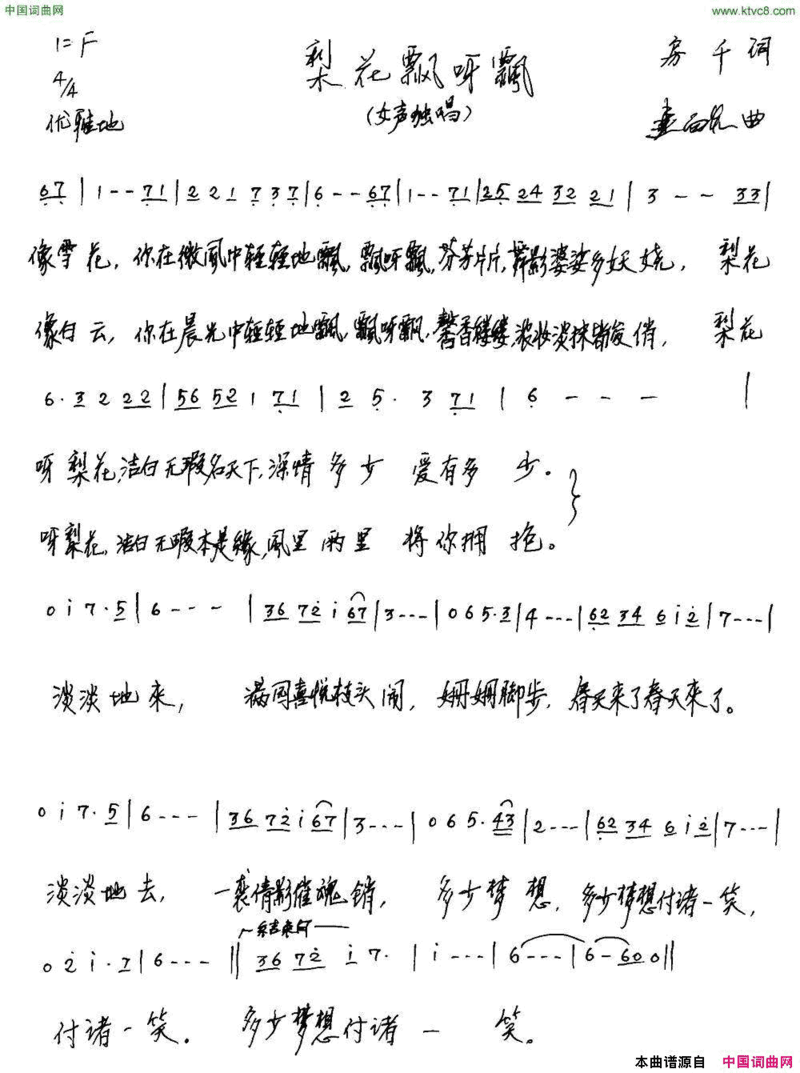 中国词曲网 www.ktvc8.com
1=F 梨花飘呀飘 房千词
4/4 (女声独唱) 曲
优雅地
67 | 1 - - 71 | 2 2 1 7 3 7 | 6 - - 67 | 1 - - 71 | 25 24 32 21 | 3 - - 33 |
像雪花,你在微风中轻轻地飘,飘呀飘,芬芳片片,舞影婆娑多妖娆, 梨花
像白云,你在晨光中轻轻地飘,飘呀飘,馨香缕缕,浓妆淡抹皆俊俏, 梨花
6· 3 2 22 | 56 52 1 71 | 2 5· 3 71 | 6 - - - |
呀梨花,洁白无瑕名天下,深情多少 爱有多少。
呀梨花,洁白无瑕本是缘,风里雨里 将你拥抱。
0 i 7· 5 | 6 - - - | 36 72 i 67 | 3 - - - | 0 6 5· 3 | 4 - - - | 62 34 6 i 2 | 7 - - - |
淡淡地来, 满园喜悦枝头闹, 姗姗脚步, 春天来了春天来了。
0 i 7· 5 | 6 - - - | 36 72 i 67 | 3 - - - | 0 6 5· 43 | 2 - - - | 62 34 6 i 2 | 7 - - - |
淡淡地去, 一袭倩影催魂销, 多少梦想, 多少梦想付诸一笑,
结束句
0 2 i· 7 | 6 - - - || 36 72 i 7· | i - - - | 6 - - - | 6 - 60 0 ||
付诸一笑。 多少梦想付诸一 笑。
本曲谱源自 中国词曲网